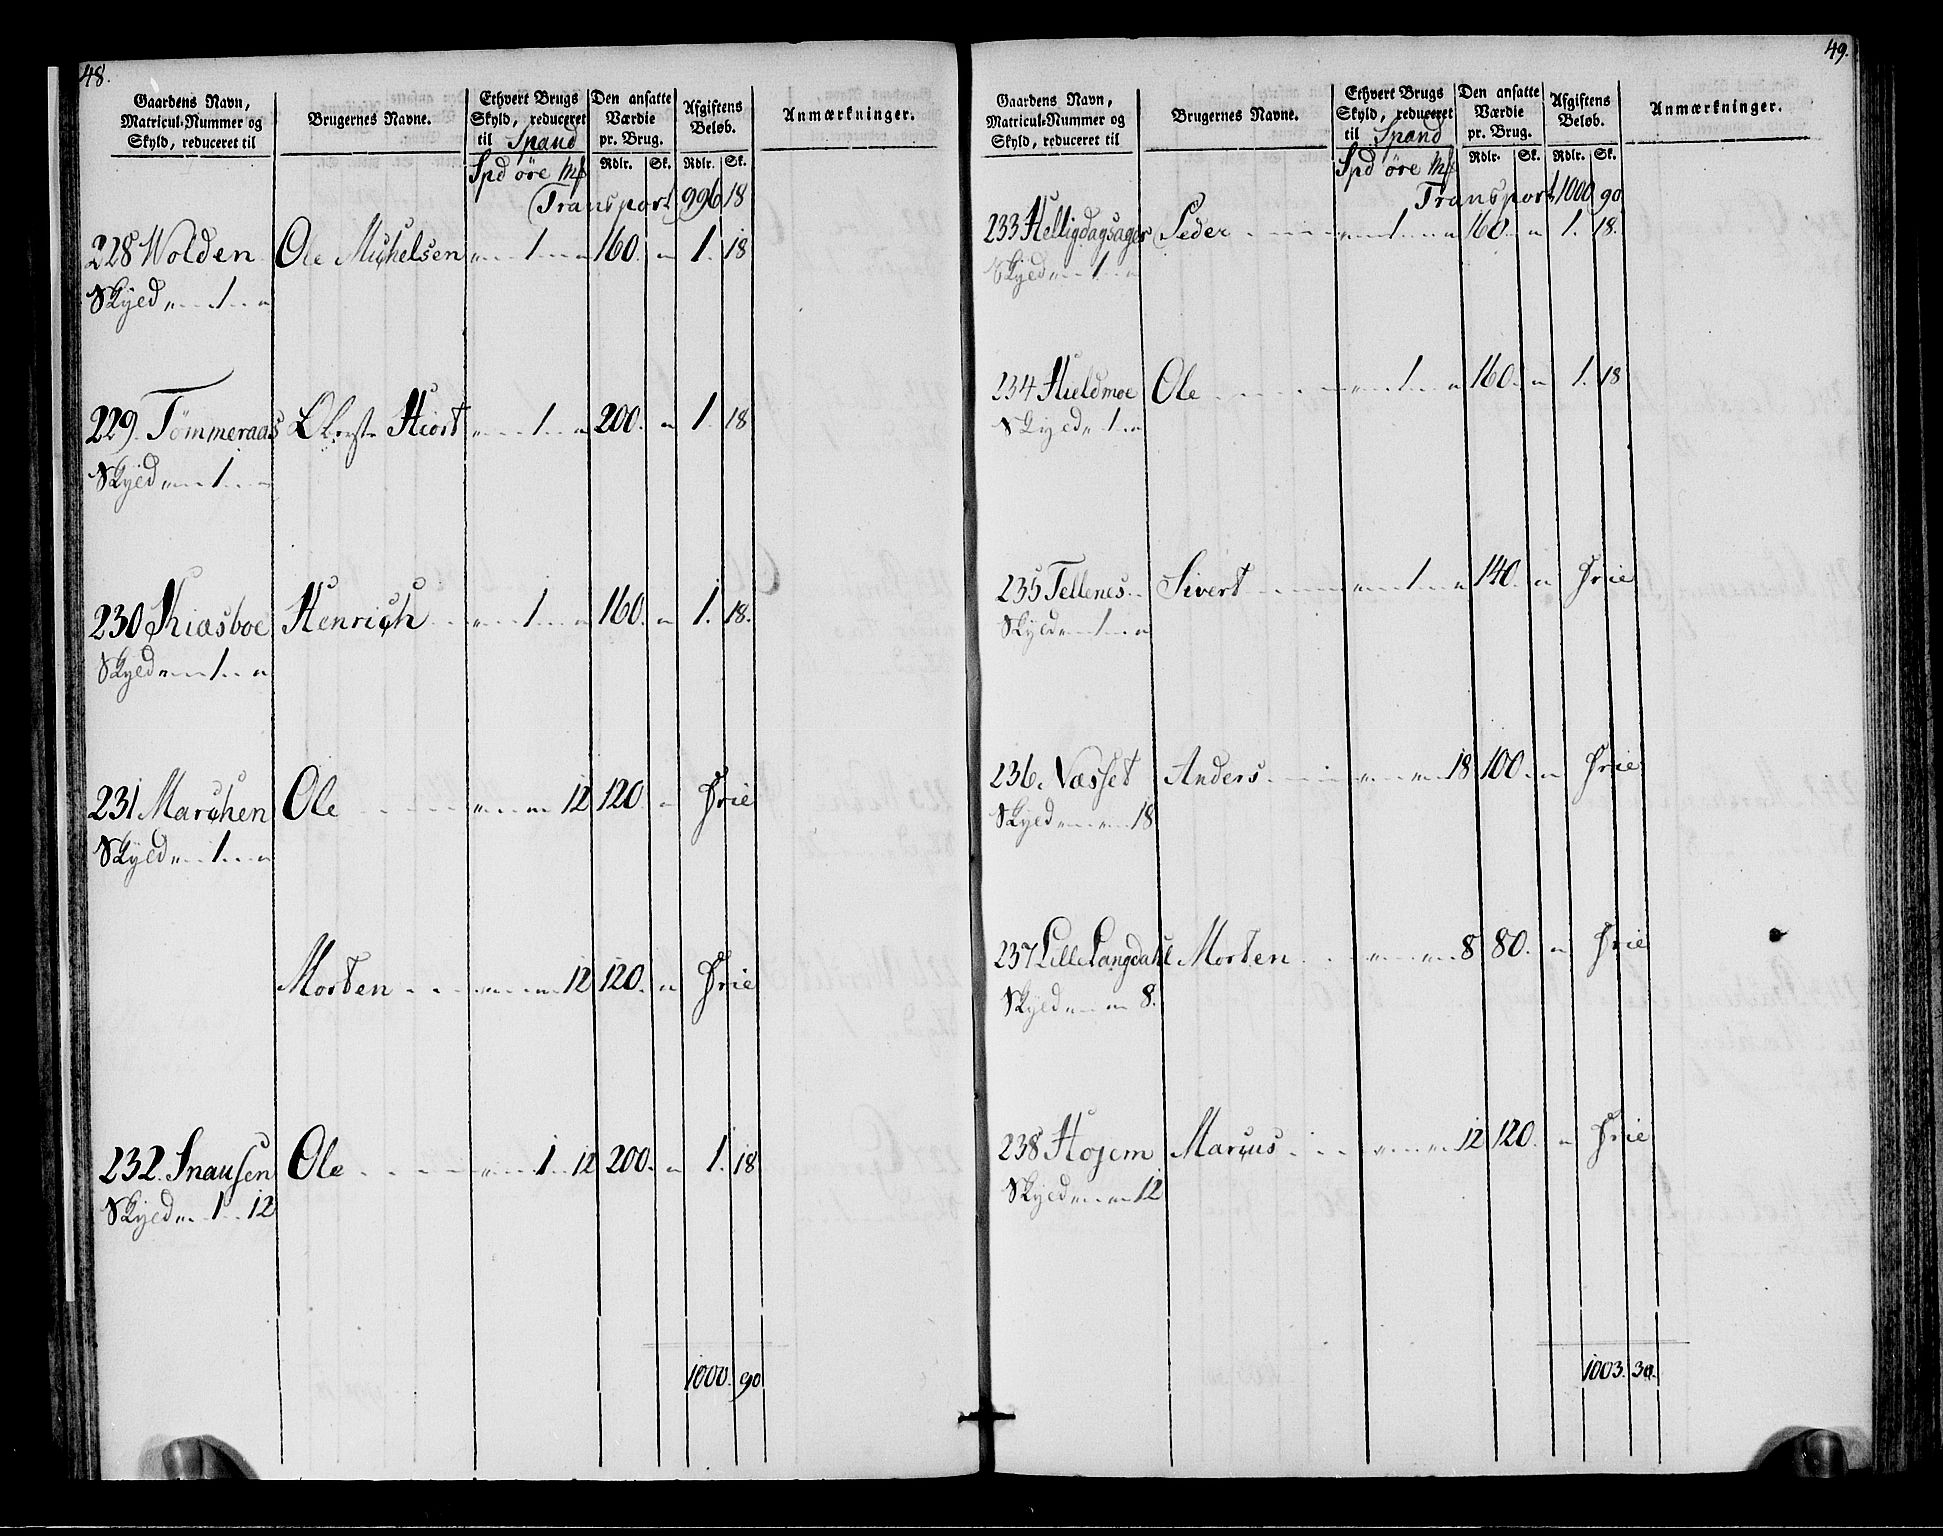 48.
Gaardens Navn, Matricul-Nummer og Skyld, reduceret til
Brugernes Navne.
Ethvert Brugs Skyld, reduceret til Spand
Den ansatte Værdie pr. Brug.
Afgiftens Beløb.
Anmærkninger.
Spd öre Mk Rdlr. Sk. Rdlr. Sk.
Transport 996 18
228 Wolden Ole Michelsen " 1 " 160. " 1. 18
Skyld " 1 "
229. Tömmeraas Hiort " 1 " 200. " 1. 18
Skyld " 1 "
230 Skiæsboe Henrich " 1 " 160. " 1. 18.
Skyld " 1 "
231 Marchen Ole " " 12 120. " Frie
Skyld " 1 "
Morten " " 12 120. " Frie
232. Snausen Ole " 1 12 200. " 1. 18
Skyld " 1 12
1000. 90
49.
Gaardens Navn, Matricul-Nummer og Skyld, reduceret til
Brugernes Navne.
Ethvert Brugs Skyld, reduceret til Spand
Den ansatte Værdie pr. Brug.
Afgiftens Beløb.
Anmærkninger.
Spd öre Mk Rdlr. Sk. Rdlr. Sk.
Transport 1000 90
233 Helligdagsager Peder " 1 " 160. " 1. 18.
Skyld " 1 "
234 Hieldmoe Ole " 1 " 160. " 1. 18
Skyld " 1 "
235 Tellenes Sivert " 1 " 140. " Frie
Skyld " 1 "
236. Næsset Anders " " 18 100. " Frie
Skyld " " 18
237 Lille Langdahl Morten " " 8 80. " Frie
Skyld " " 8.
238 Hojem Marcus " " 12 120. " Frie
Skyld " " 12
1003. 30.